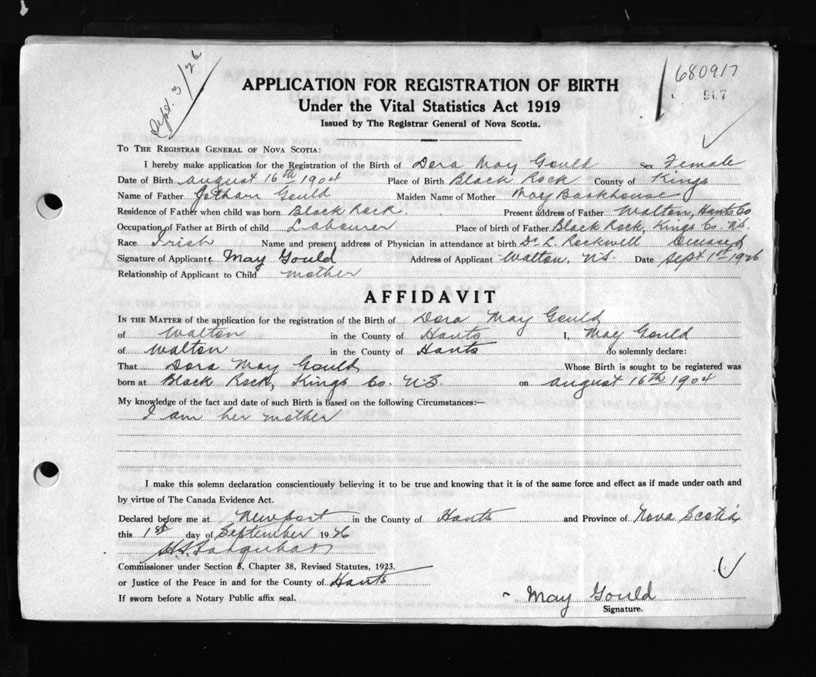 Sept. 3/26
680917
907
APPLICATION FOR REGISTRATION OF BIRTH
Under the Vital Statistics Act 1919
Issued by The Registrar General of Nova Scotia.
TO THE REGISTRAR GENERAL OF NOVA SCOTIA:
I hereby make application for the Registration of the Birth of Dora May Gould Female
Date of Birth august 16th 1904 Place of Birth Black Rock County of Kings
Name of Father Gould Maiden Name of Mother May Backhouse
Residence of Father when child was born Black Rock. Present address of Father Walton, Hants Co
Occupation of Father at Birth of child Labourer Place of birth of Father Black Rock, Kings Co. N.S.
Race Irish Name and present address of Physician in attendance at birth Dr L. Rockwell Deceased
Signature of Applicant May Gould Address of Applicant Walton, N.S. Date Sept 1st 1926
Relationship of Applicant to Child mother
AFFIDAVIT
IN THE MATTER of the application for the registration of the Birth of Dora May Gould
of Walton in the County of Hants I, May Gould
of Walton in the County of Hants do solemnly declare:
That Dora May Gould Whose Birth is sought to be registered was
born at Black Rock, Kings Co. N.S. on august 16th 1904
My knowledge of the fact and date of such Birth is based on the following Circumstances:—
I am her mother
I make this solemn declaration conscientiously believing it to be true and knowing that it is of the same force and effect as if made under oath and
by virtue of The Canada Evidence Act.
Declared before me at Newport in the County of Hants and Province of Nova Scotia
this 1st day of September 1926
Commissioner under Section 8, Chapter 38, Revised Statutes, 1923.
or Justice of the Peace in and for the County of Hants
If sworn before a Notary Public affix seal.
May Gould
Signature.